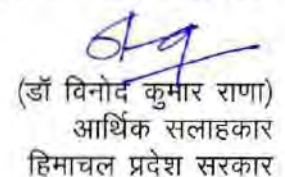 (डॉ विनोद कुमार राणा)
आर्थिक सलाहकार
हिमाचल प्रदेश सरकार